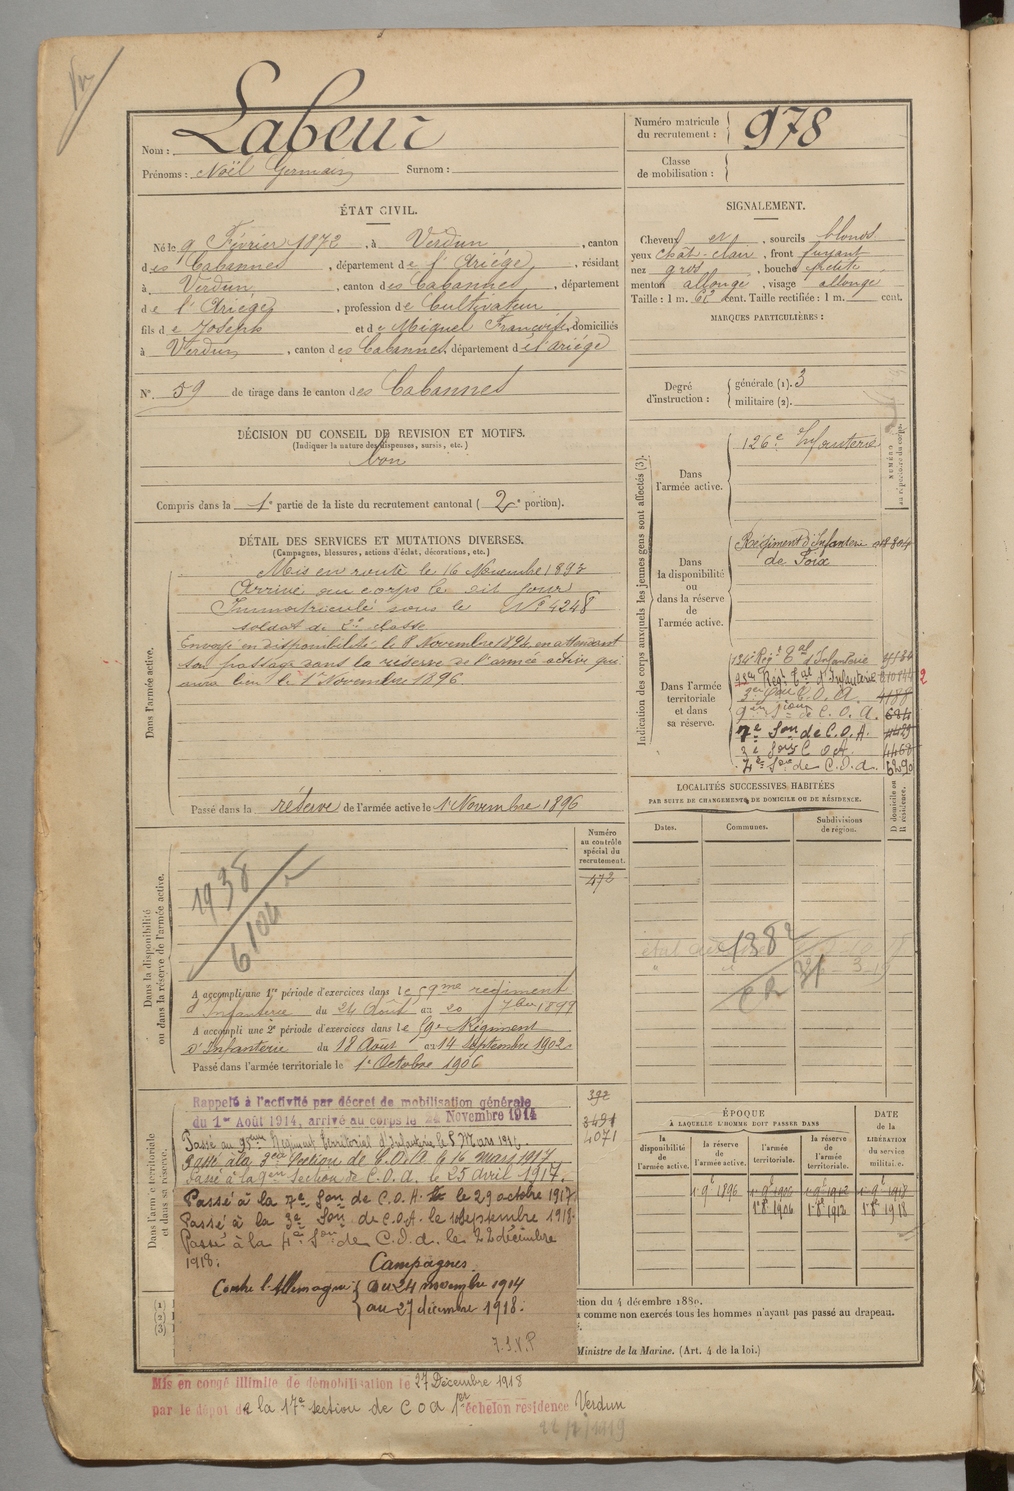 Nom : Labeur
Prénoms : Noël Germain Surnom :
Numéro matricule du recrutement : 978
Classe de mobilisation :
ÉTAT CIVIL.
Né le 9 Février 1872, à Verdun, canton
des Cabannes, département de l'Ariège, résidant
à Verdun, canton des Cabannes, département
de l'Ariège, profession de Cultivateur
fils de Joseph et de Miquel Françoise, domiciliés
à Verdun, canton des Cabannes, département de l'ariège
N° 59 de tirage dans le canton des Cabannes
SIGNALEMENT.
Cheveux et , sourcils blonds
yeux chât-clair, front fuyant
nez gros, bouche petite
menton allongé, visage allongé
Taille : 1 m. cent. Taille rectifiée : 1 m. cent.
MARQUES PARTICULIÈRES :
Degré d'instruction : générale (1). 3
militaire (2).
DÉCISION DU CONSEIL DE REVISION ET MOTIFS.
(Indiquer la nature des dispenses, sursis, etc.)
bon
Compris dans la 1e partie de la liste du recrutement cantonal ( 2e portion).
DÉTAIL DES SERVICES ET MUTATIONS DIVERSES.
(Campagnes, blessures, actions d'éclat, décorations, etc.)
Dans l'armée active.
Mis en route le 16 Novembre 1893
Arrivé au corps le dit jour
Immatriculé sous le N° 4248
soldat de 2e classe
Envoyé en disponibilité le 8 Novembre 1894, en attendant
son passage dans la réserve de l'armée active qui
aura lieu le 1er Novembre 1896
Passé dans la réserve de l'armée active le 1 Novembre 1896
Indication des corps auxquels les jeunes gens sont affectés (3).
NUMÉRO au répertoire du corps.
Dans l'armée active.
126e Infanterie
Dans la disponibilité ou dans la réserve de l'armée active.
Régiment d'Infanterie
de Foix
Dans l'armée territoriale et dans sa réserve.
134e Régt Tal d'Infanterie
95em Régt Tal d'Infanterie 2
3e Son C.O.A. 4188
9e Son de C.O.A.
7e Son de C.O.A.
3e Son C.O.A.
4e Son de C.O.A. 5290
LOCALITÉS SUCCESSIVES HABITÉES
PAR SUITE DE CHANGEMENTS DE DOMICILE OU DE RÉSIDENCE.
Dates. Communes. Subdivisions de région. D domicile ou R résidence.
1382
Numéro au contrôle spécial du recrutement.
472
Dans la disponibilité ou dans la réserve de l'armée active.
1938
6104
A accompli une 1re période d'exercices dans le 59me régiment
d'Infanterie du 24 Août au 20 7bre 1899
A accompli une 2e période d'exercices dans le 59e Régiment
d'Infanterie du 18 Août au 14 Septembre 1902.
Passé dans l'armée territoriale le 1er Octobre 1906
Dans l'armée territoriale et dans sa réserve.
392
3491
4071
Rappelé à l'activité par décret de mobilisation générale
du 1er Août 1914, arrivé au corps le 24 Novembre 1914
Passé au 95em Régiment Territorial d'Infanterie le 8 Mars 191
Passé à la 3em Section de C.O.A. le 16 mars 1917
Passé à la 9em Section de C.O.A. le 25 avril 1917.
Passé à la 7e Son de C.O.A. le 29 octobre 1917
Passé à la 3e Son de C.O.A. le 1 Septembre 1918.
Passé à la 4e Son de C.O.A. le 22 décembre
1918.
Campagnes.
Contre l'Allemagne { Du 24 novembre 1914
au 27 décembre 1918.
T.S.V.P
ÉPOQUE
À LAQUELLE L'HOMME DOIT PASSER DANS
DATE de la LIBÉRATION du service militaire.
la disponibilité de l'armée active. la réserve de l'armée active. l'armée territoriale. la réserve de l'armée territoriale.
1 9e 1896
(1)
(2)
(3)
ction du 4 décembre 1889.
comme non exercés tous les hommes n'ayant pas passé au drapeau.
Ministre de la Marine. (Art. 4 de la loi.)
Mis en congé illimité de démobilisation le 27 Décembre 1918
par le dépot de la 17e section de C O A 1er échelon résidence Verdun